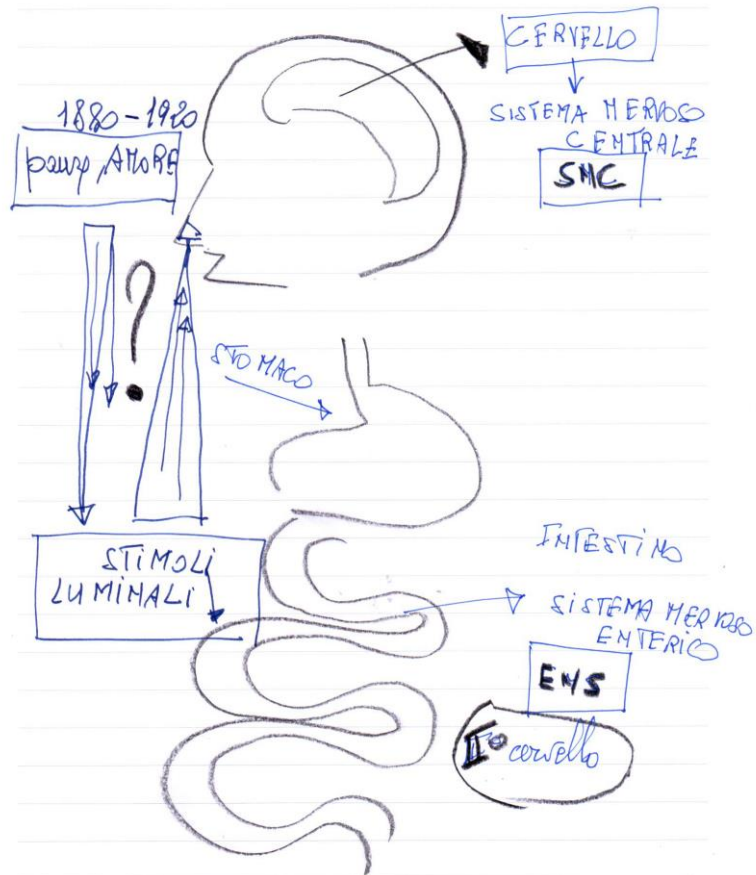 CERVELLO
SISTEMA NERVOSO
CENTRALE
SNC
1880-1920
, AMORE
?
STOMACO
STIMOLI
LUMINALI
INTESTINO
SISTEMA NERVOSO
ENTERICO
ENS
II° cervello